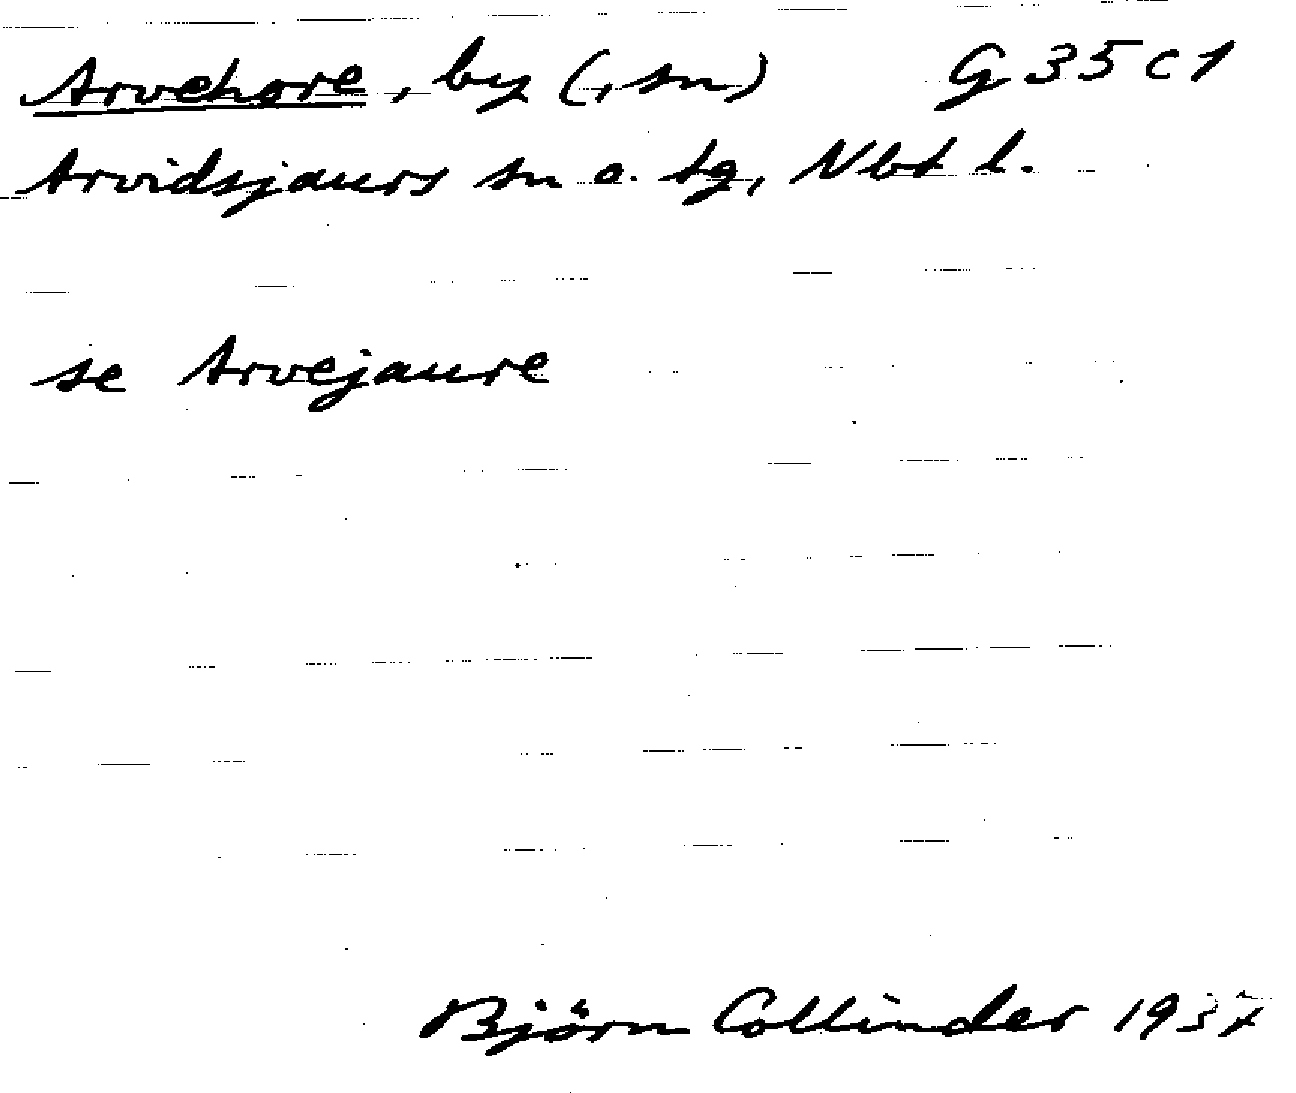 Arvehore, by (, sn) G 35 c 1
Arvidsjaurs sn o. tg, Nbt l.
se Arvejaure
Björn Collinder 1937